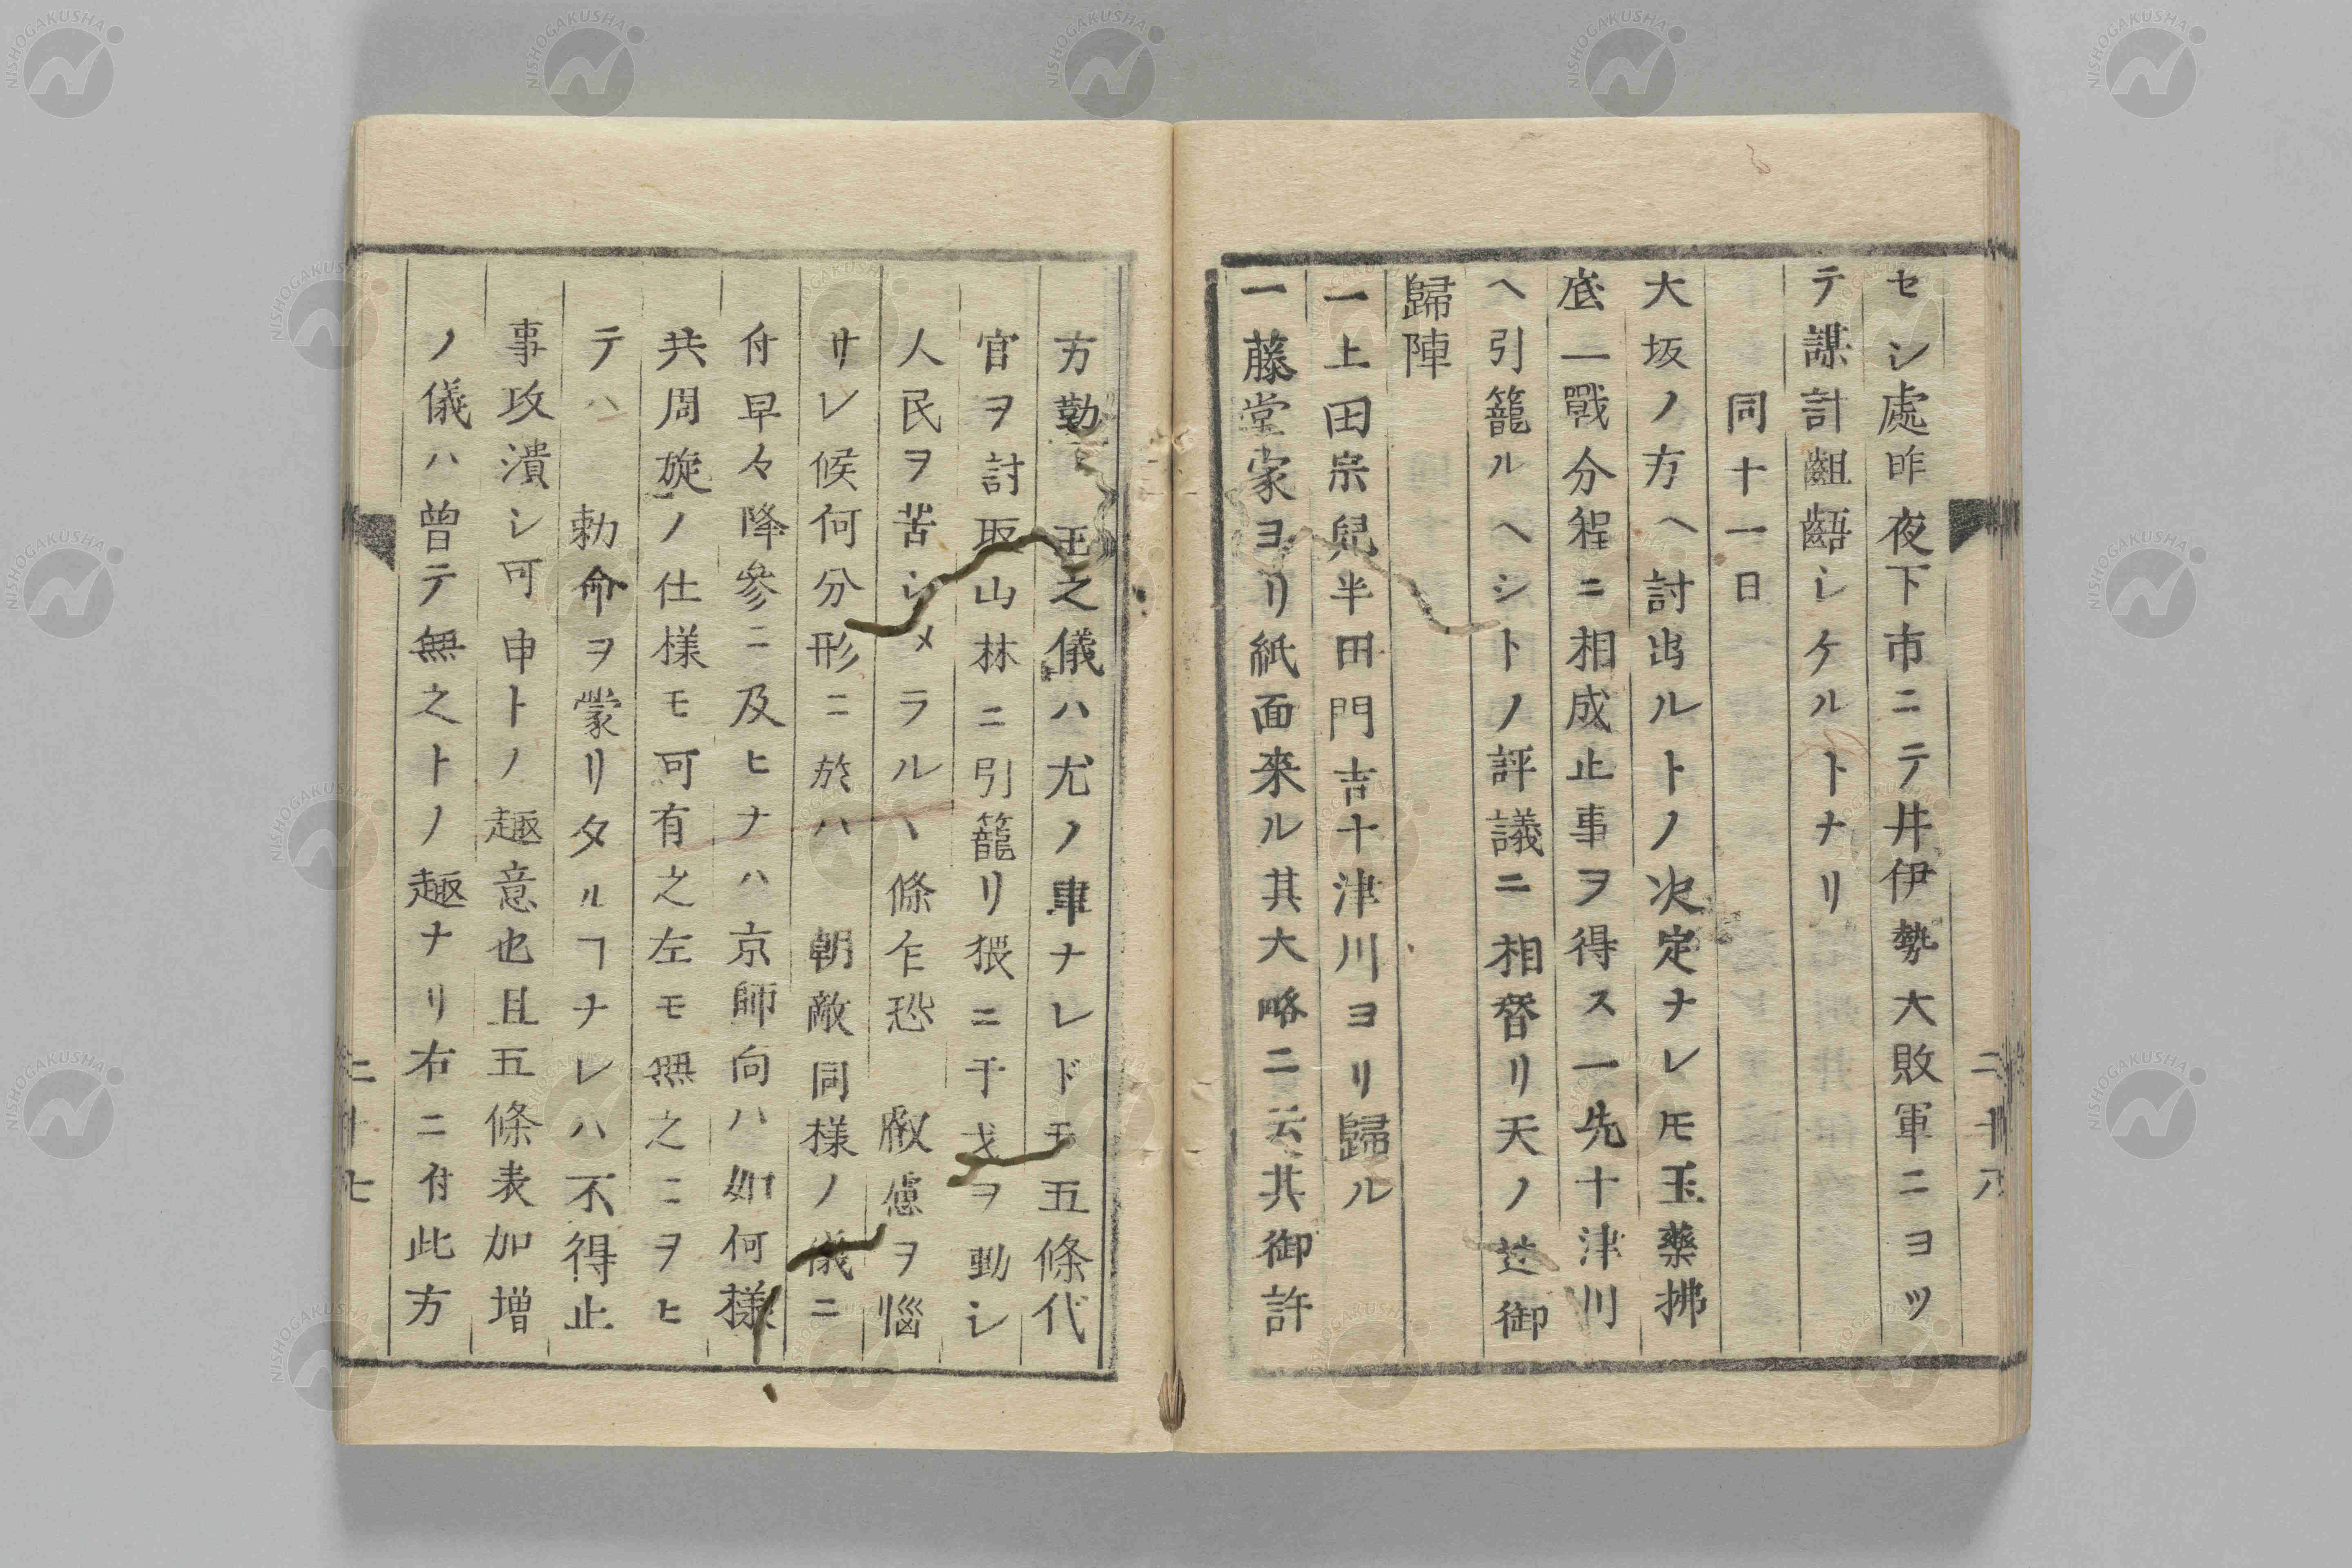 セシ處昨夜下市ニテ井伊勢大敗軍ニヨツ
テ謀計齟齬シケルトナリ
同十一日
大坂ノ方ヘ討出ルトノ决定ナレ𪜈玉藥拂
底一戰分程ニ相成止事ヲ得ス一先十津川
ヘ引籠ルヘシトノ評議ニ相督リ天ノ辻御
歸陣
一上田宗兒半田門吉十津川ヨリ歸ル
一藤堂家ヨリ紙面來ル其大略ニ云其御許
二十八
方勤 王之儀ハ尤ノ事ナレドモ五條代
官ヲ討取山林ニ引籠リ猥ニ干戈ヲ動シ
人民ヲ苦シメラルヽ條乍恐 叡慮ヲ惱
サレ候何分形ニ於ハ 朝敵同様ノ儀ニ
付早々降參ニ及ヒナハ京師向ハ如何様
共周旋ノ仕様モ可有之左モ無之ニヲヒ
テハ 勅命ヲ蒙リタルヿナレハ不得止
事攻潰シ可申トノ趣意也且五條表加増
ノ儀ハ曾テ無之トノ趣ナリ右ニ付此方
二十七
NISHOGAKUSHA